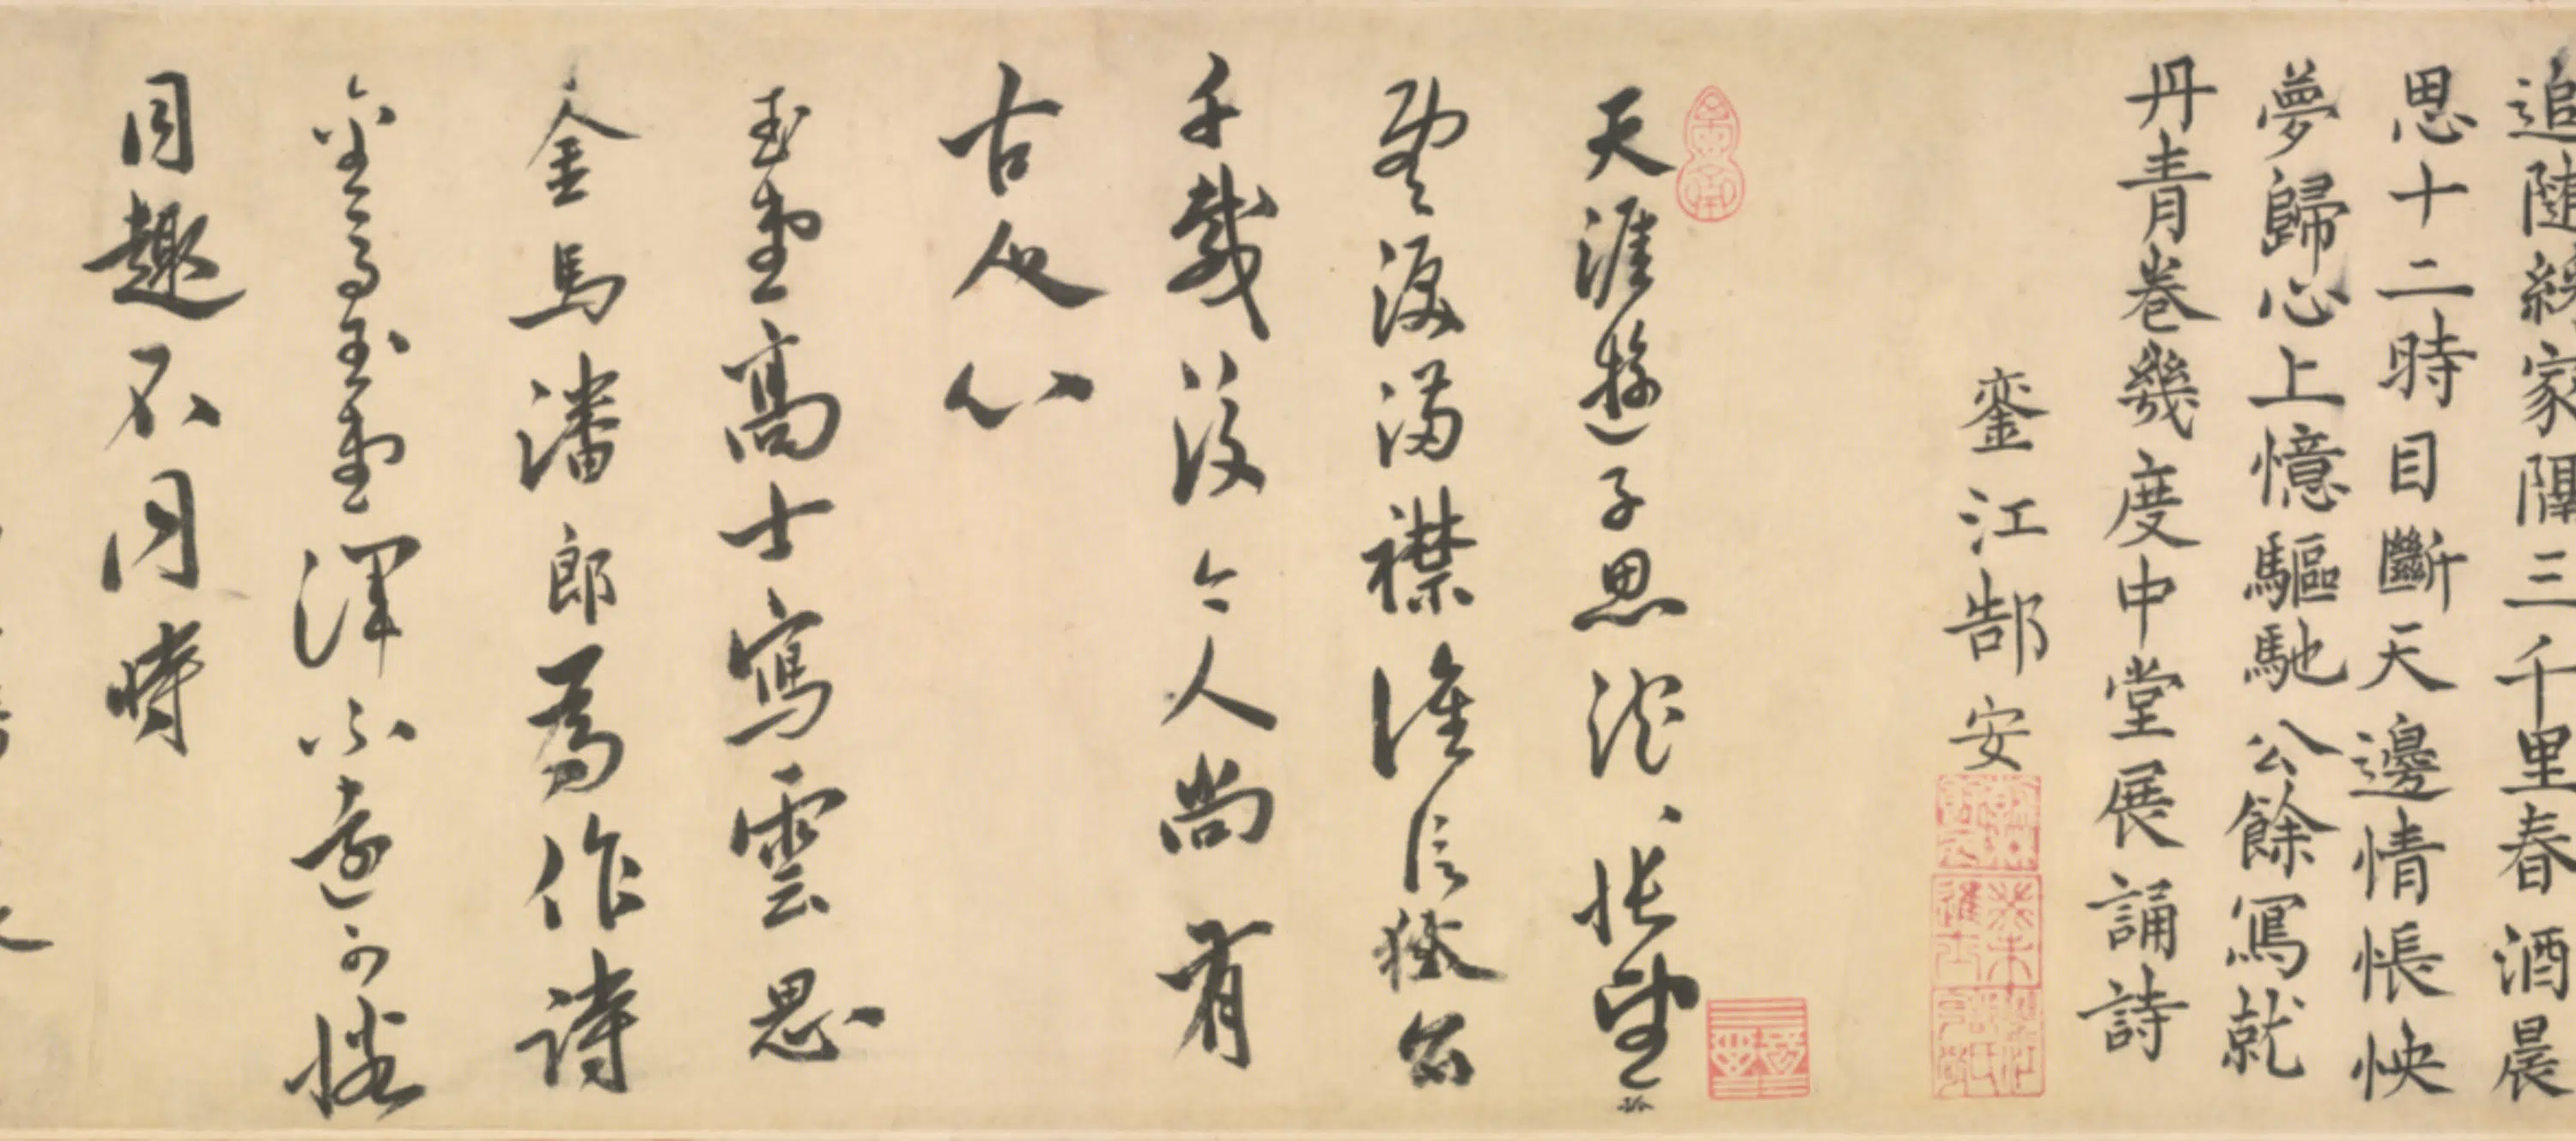 追隨綵家隔三千里春酒晨
思十二時目斷天邊情悵怏
夢歸心上憶驅馳公餘寫就
丹青卷幾度中堂展誦詩
銮江郜安
天涯遊子思沈、悵望孤
雲淚滿襟誰信狄公
千載後今人尚有
古人心
玉堂高士寫雲思
金馬潘郎為作詩
金馬玉堂渾不遠可憐
同趣不同時